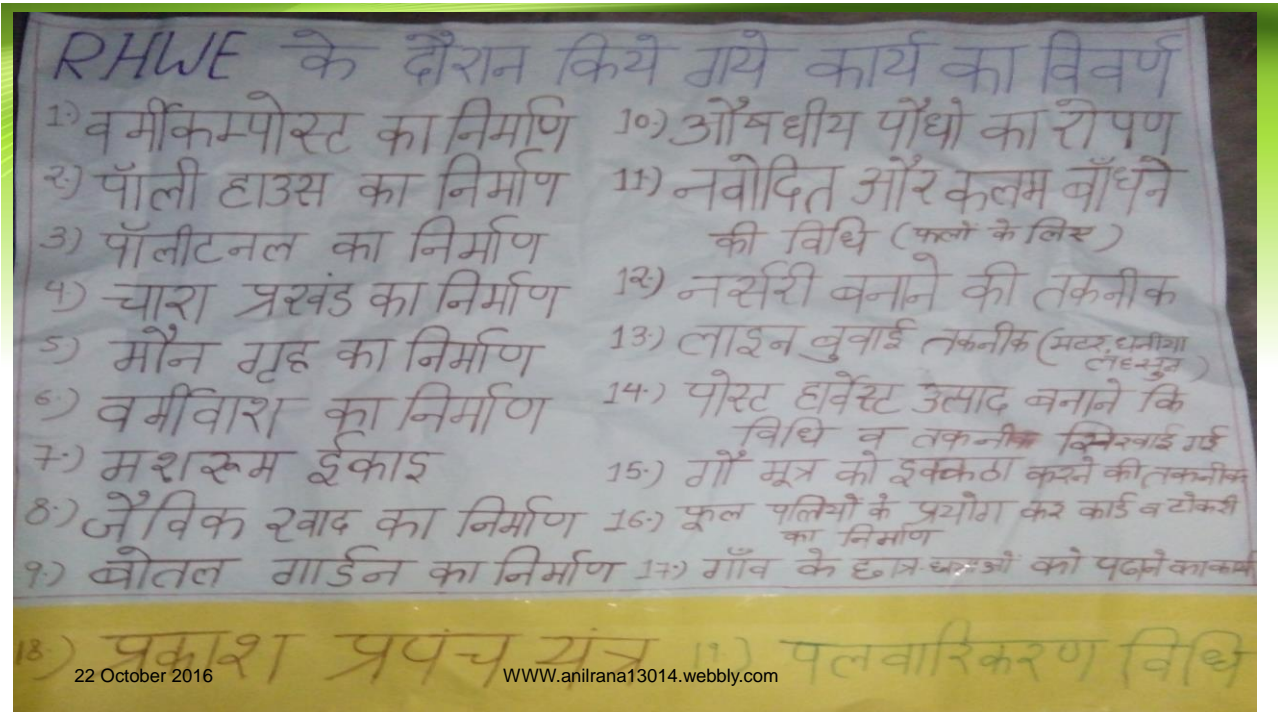 RHWE के दौरान किये गये कार्य का विवर्ण
1.) वर्मीकम्पोस्ट का निर्माण
2.) पॉली हाउस का निर्माण
3.) पॉलीटनल का निर्माण
4.) चारा प्रखंड का निर्माण
5.) मौन गृह का निर्माण
6.) वर्मीवाश का निर्माण
7.) मशरूम ईकाइ
8.) जैविक खाद का निर्माण
9.) बोतल गार्डन का निर्माण
10.) औषधीय पौधो का रोपण
11.) नवोदित और कलम बाँधने
की विधि (फलों के लिए)
12.) नर्सरी बनाने की तकनीक
13.) लाइन बुवाई तकनीक (मटर, धनीया
लहसुन)
14.) पोस्ट हार्वेस्ट उत्पाद बनाने कि
विधि व तकनीक सिखाई गई
15.) गौ मूत्र को इक्कठा करने की तकनीक
16.) फूल पत्तियों के प्रयोग कर कार्ड व टोकरी
का निर्माण
17.) गाँव के छात्र-छात्राओं को पढाने का कार्य
18.) प्रकाश प्रपंच यंत्र 19.) पलवारिकरण विधि
22 October 2016 WWW.anilrana13014.webbly.com